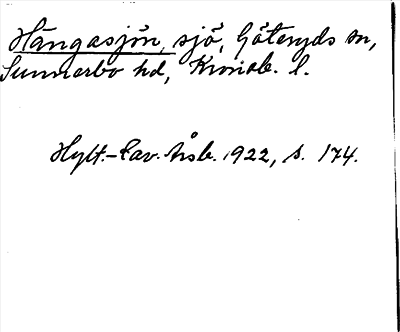 Hängasjön, sjö, Göteryds sn,
Sunnerbo hd, Kronob. l.
Hylt.-Cav. årsb. 1922, s. 174.